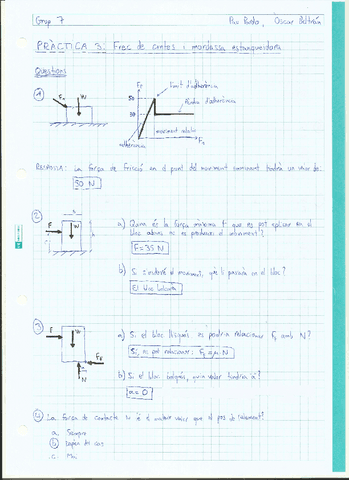 Grup 7
PRÀCTICA 3. Frec de contos i mordassa estranguladora.
Qüestions
1
W
50
30
límit d'adherència
adherència
moviment
Resposta: La força de fricció en el punt del moviment imminent tindrà un valor de:
50 N
2
F
W
a) Quina és la força màxima F que es pot aplicar en el
bloc abans no es produeixi el moviment?
F=35N
b) Si s'estudia el moviment, què li passarà en el bloc?
El bloc bolcarà
3
F
W
N
a) Si el bloc llisqués es podria relacionar amb N?
Sí, es pot relacionar:
b) Si el bloc bolqués, quin valor tindria
4 La força de contacte és el mateix valor que el pes
a. Sempre
b
c. Mai